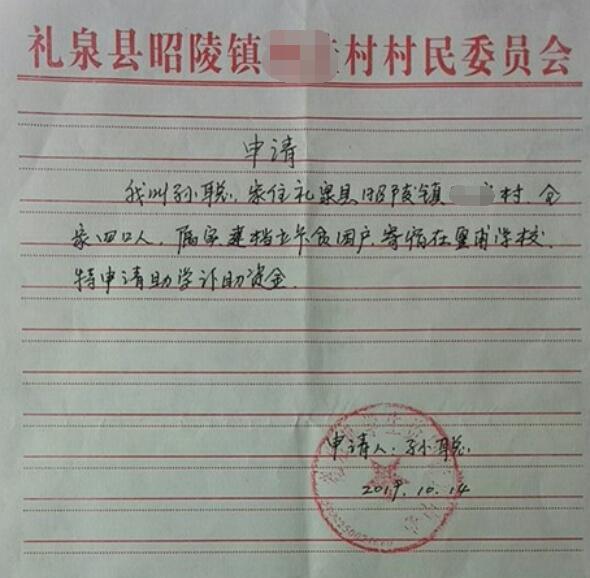 礼泉县昭陵镇 村村民委员会
申请
我叫孙聪,家住礼泉县昭陵镇 村,全
家四口人,属实建档立卡贫困户,寄宿在皇甫学校,
特申请助学补助资金.
申请人:孙聪
2019.10.14